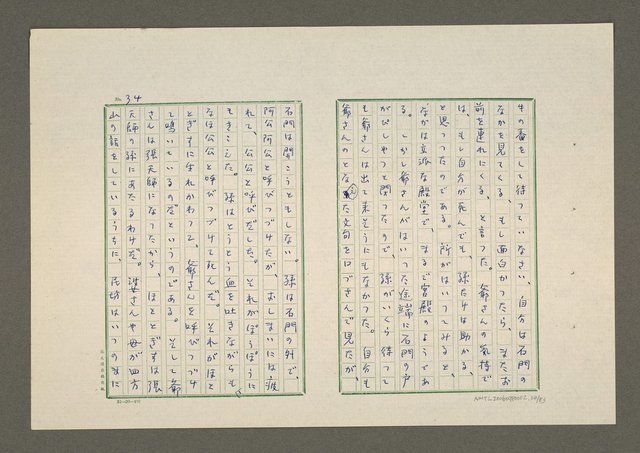 牛の番をして待っていなさい、自分は石門の
なかを見てくる、もし面白かつたら、またお
前を連れにくる、と言った。爺さんの気持で
は、もし自分が死んでも、孫だけは助かる、
と思ったのである。所がはいってみると、
なかは立派な殿堂で、まるで宮殿のようであ
る。しかし爺さんがはいった途端に石門の戸
がぴしやつと閉つたので、孫がいくら待って
も爺さんは出て来そうにもなかつた。自分も
爺さんのとなえた文句を口づさんで見たが、
No. 34
石門は開こうともしない。孫は石門の外で、
阿公阿公と呼びつづけたが、おしまいには疲
れて、公公と呼びだした。それがぽうぽうに
もきこえた。孫はとうとう血を吐きながらも、
なほ公公と呼びつづけて死んだ。それがほと
とぎすに生れかわって、爺さんを呼びつづけ
て鳴いているのだというのである。そして爺
さんは張天師になったから、ほととぎすは張
天師の孫にあたるわけだ。婆さんや母が四方
山の話をしているうちに、阿坊はいつのまに